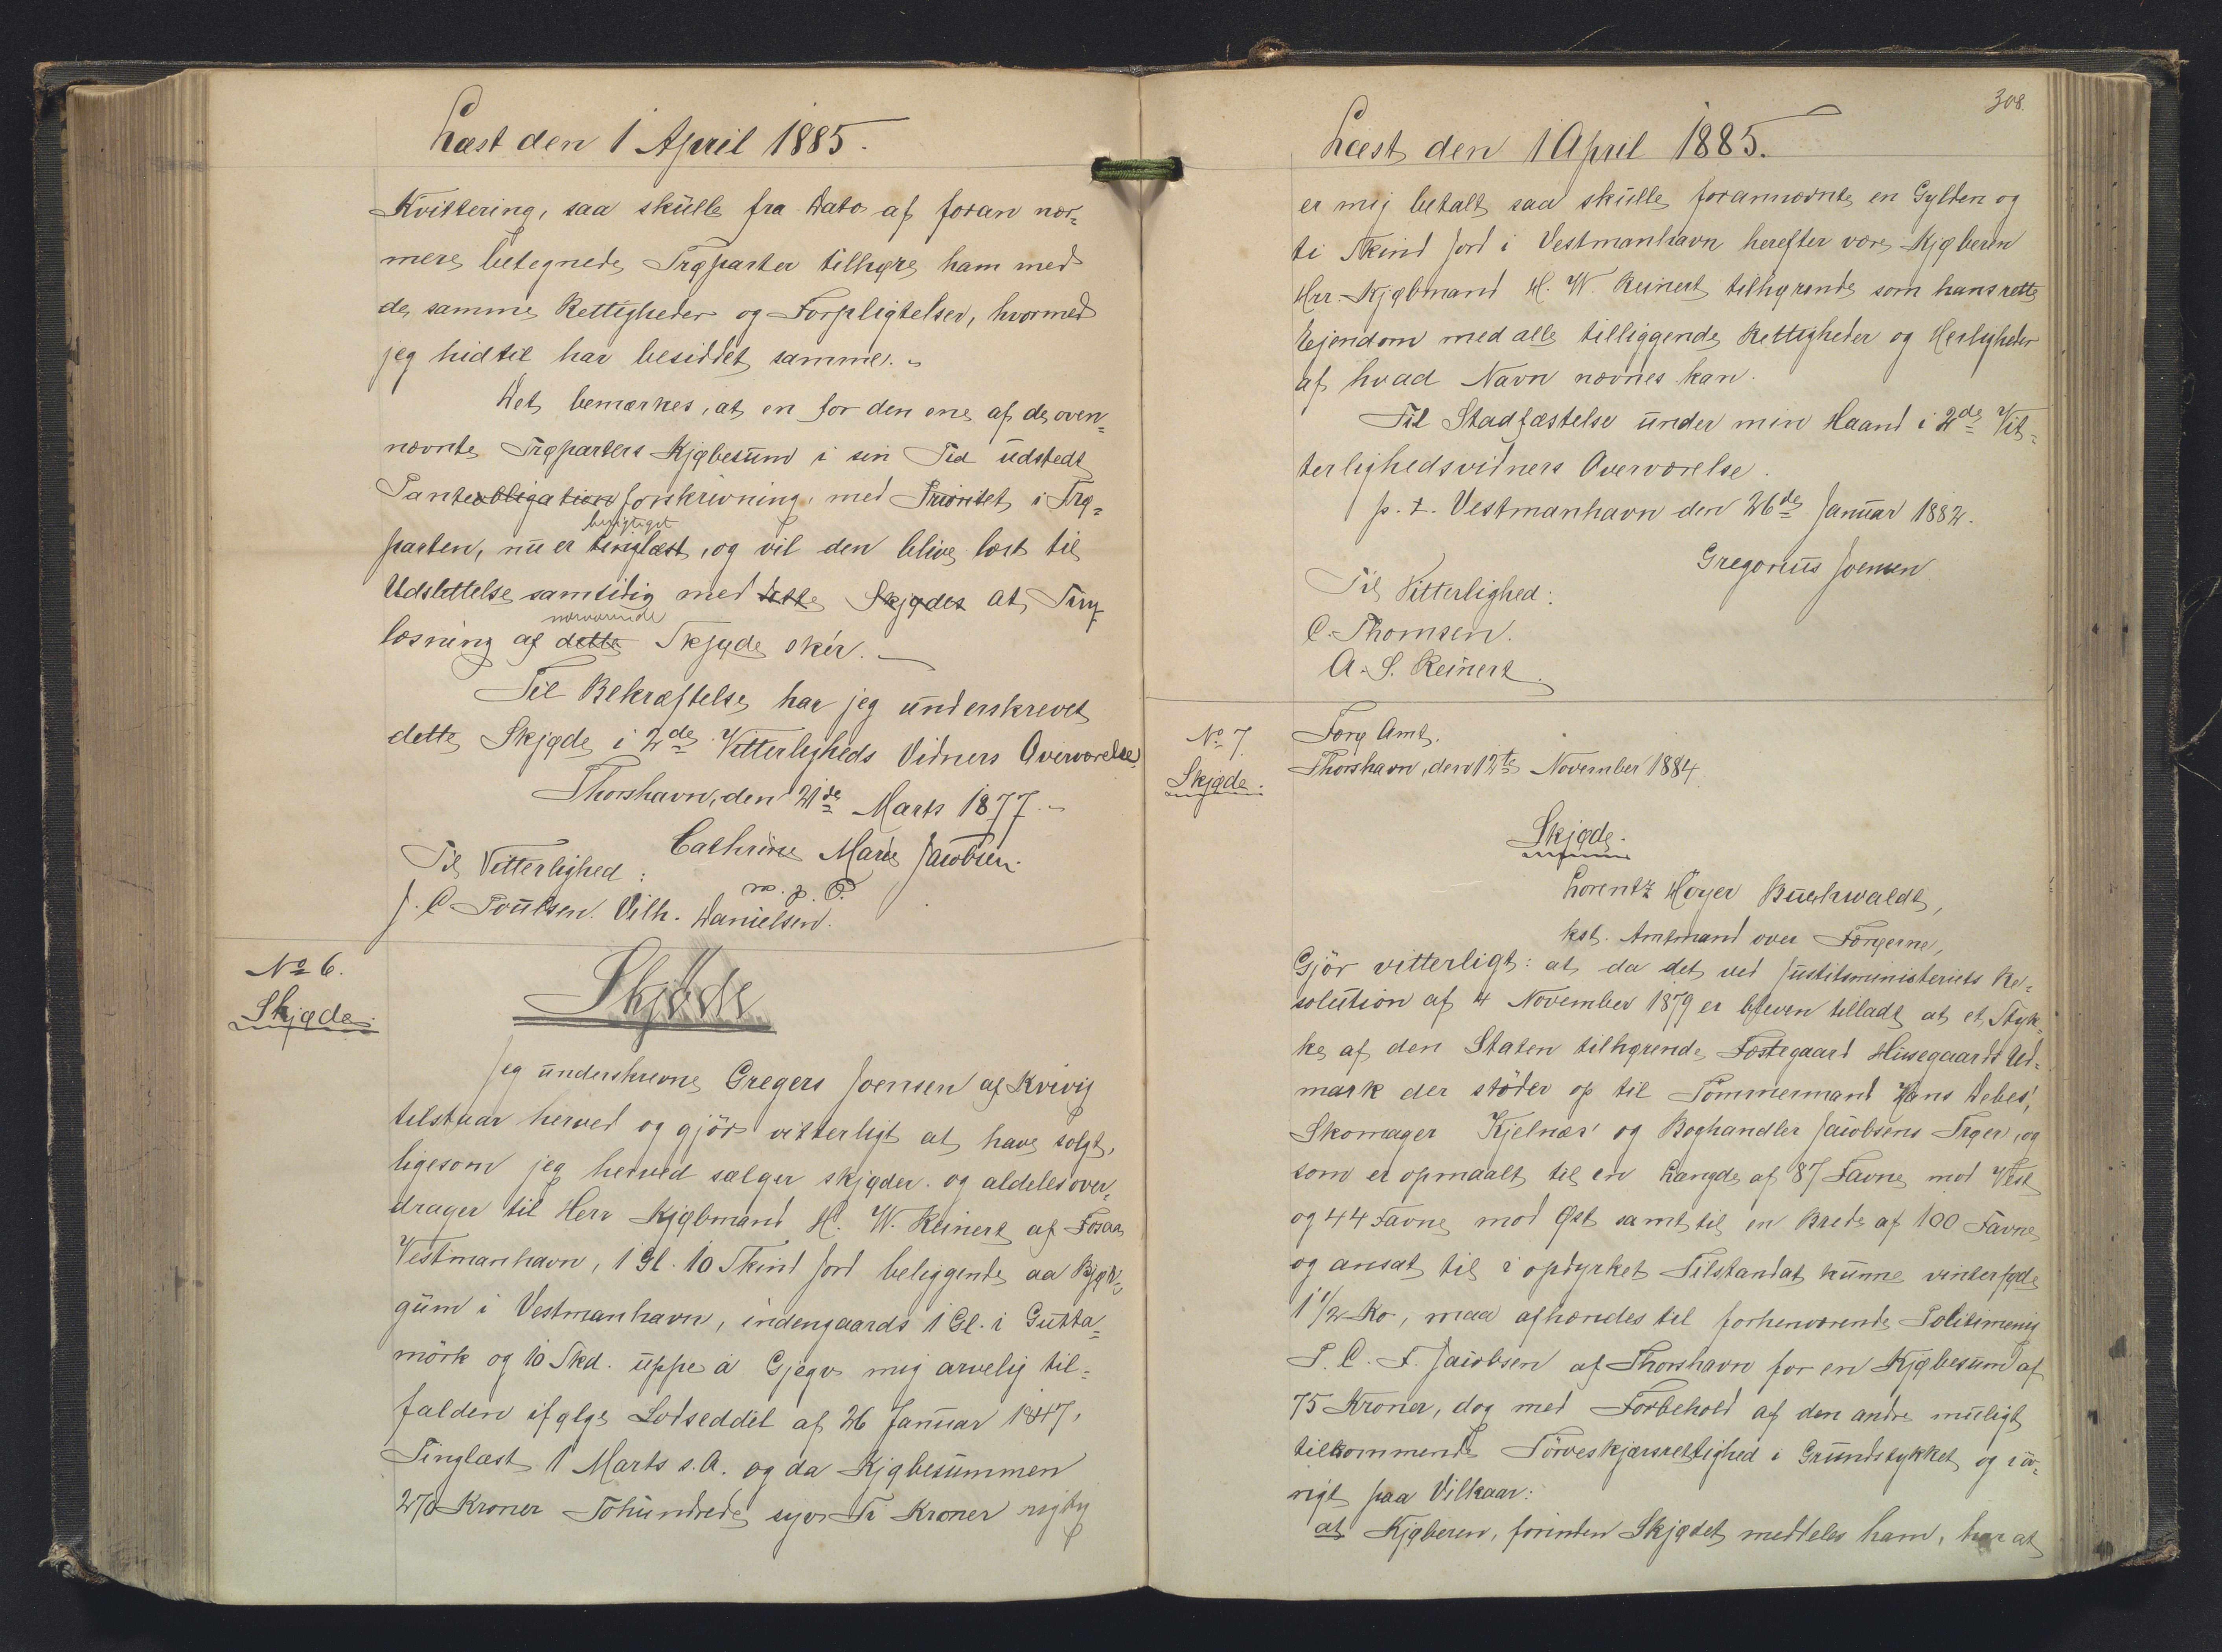 Læst den 1 April 1885.
Kvittering, saa skulle fra Dato af foran nær=
mere betegnede Trøparter tilhøre ham med
de samme Rettigheder og Forpligtelser, hvormed
jeg hidtil har besiddet samme. "
Det bemærkes, at en for den ene af de oven=
nævnte Trøparters Kjøbesum i sin Tid udstedt
Panteobligation forskrivning, med Prioritet i Trø=
berigtiget
parten, nu er tinglæst, og vil den blive læst til
Udslettelse samtidig med dette Skjødes at Ting
nærværende
læsning af dette Skjøde skér. —
Til Bekræftelse har jeg underskrevet
dette Skjøde i 2de Vitterligheds Vidners Overværelse
Thorshavn, den 21de Marts 1877. "
Cathrine Marie Jacobsen.
m. f. P.
Til Vitterlighed:
J. C Poulsen. Vilh. Danielsen.
No 6.
Skjøde.
Skjøde
Jeg underskrevne Gregers Joensen af Kvivig
tilstaar herved og gjör vitterligt at have solgt,
ligesom jeg herved sælger skjøder og aldeles over=
drager til Herr Kjøbmand H. W. Reinert af Fosaa
Vestmanhavn, 1 Gl. 10 Skind Jord beliggende aa
gum i Vestmanhavn, indengaards 1 Gl. i Gutta=
mörk og 10 Skd. uppe á Gjegv mig arvelig til=
falden ifølge Lodseddel af 26 Januar 1847,
Tinglæst 1 Marts s. A. og da Kjøbesummen
270 Kroner Tohundrede syv Ti Kroner rigtig
308.
Læst den 1 April 1885.
er mig betalt saa skulle forannævnte en Gylden og
ti Skind Jord i Vestmanhavn herefter være Kjøberen
Hrr. Kjøbmand H. W. Reinert tilhørende som hans rette
Ejendom med alle tilliggende Rettigheder og Herligheder
af hvad Navn nævnes kan.
Til Stadfæstelse under min Haand i 2de Vit=
terlighedsvidners Overværelse.
p. t. Vestmanhavn den 26de Januar 1882.
Gregorius Joensen
Til Vitterlighed:
C. Thomsen.
A. S. Reinert.
No 7.
Skjøde.
Færø Amt.
Thorshavn, den 12te November 1884
Skjøde.
Lorentz Höyer Buchwaldt,
kst. Amtmand over Færøerne,
Gjör vitterligt: at da det ved Justitsministeriets Re=
solution af 4 November 1879 er bleven tilladt at et Styk=
ke af den Staten tilhørende Fæstegaard Husegaards Ud=
mark der stöder op til Tömmermand Hans Debes',
Skomager Kjelnæs' og Boghandler Jacobsens Trøer, og
som er opmaalt til en Længde af 87 Favne mod Vest
og 44 Favne mod Øst samt til en Brede af 100 Favne
og ansat til i opdyrket Tilstand at kunne vinterføde
1 1/2 Ko, maa afhændes til forhenværende Politimenig
P. C. F. Jacobsen af Thorshavn for en Kjøbesum af
75 Kroner, dog med Forbehold af den andre muligt
tilkommende Törveskjærsrettighed i Grundstykket og iöv=
rigt paa Vilkaar:
at Kjøberen, forinden Skjødet meddeles ham, har at